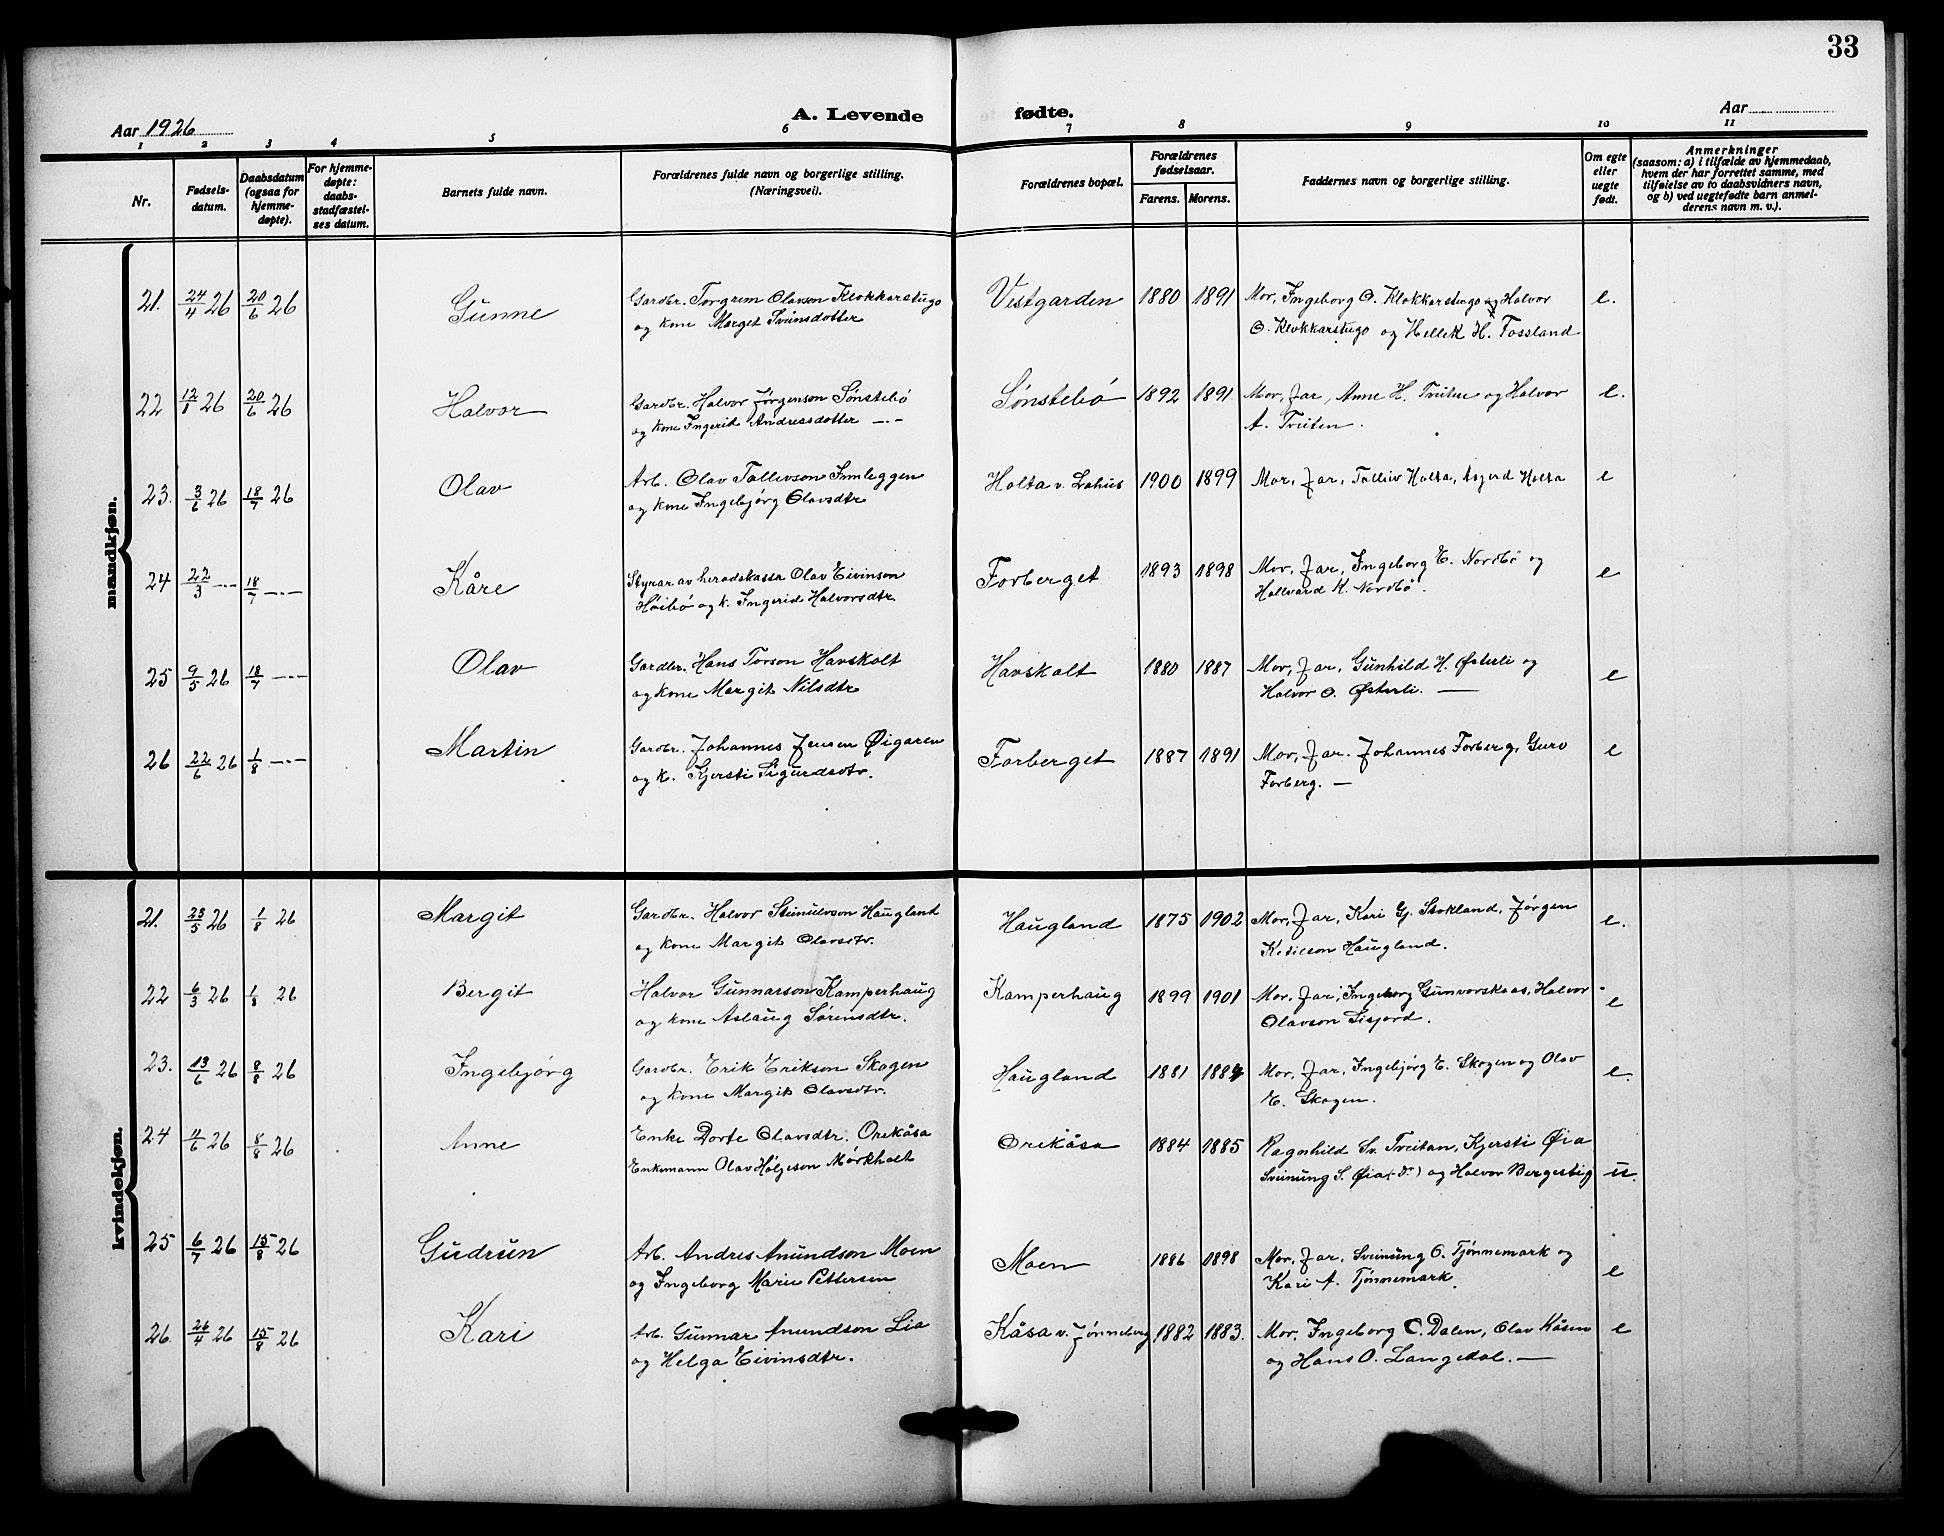 33
Aar 1926
A. Levende fødte.
Aar
1 2 3 4 5 6 7 8 9 10 11
Nr.
Fødsels-
datum.
Daabsdatum
(ogsaa for
hjemme-
døpte).
For hjemme-
døpte:
daabs-
stadfæstel-
ses datum.
Barnets fulde navn.
Forældrenes fulde navn og borgerlige stilling.
(Næringsvei).
Forældrenes bopæl.
Forældrenes
fødselsaar.
Farens. Morens.
Faddernes navn og borgerlige stilling.
Om egte
eller
uegte
født.
Anmerkninger
(saasom: a) i tilfælde av hjemmedaab,
hvem der har forrettet samme, med
tilføielse av to daabsvidners navn,
og b) ved uegtefødte barn anmel-
derens navn m. v.).
mandkjøn.
21. 24/4 26 20/6 26 Gunne Gardbr. Torgrim Olavson Klokkarstugo Vestgarden 1880 1891 Mor, Ingeborg O. Klokkarstugo og Halvor e.
og kone Marget Sveinsdotter O. Klokkarstugo og Hellek H. Fossland
22 12/1 26 20/6 26 Halvor Gardbr. Halvor Jørgenson Sønstebø Sønstebø 1892 1891 Mor, Far, Anne H. Tviten og Halvor e.
og kone Ingerid Andressdotter —.— A. Tveiten.
23. 3/6 26 18/7 26 Olav Arb. Olav Tallevson Innleggen Holta v. Lahus 1900 1899 Mor, Far, Talleiv Holta, Asgerd Holta e
og kone Ingebjørg Olavsdtr
24 22/3 —.— 18/7 —.— Kåre Styrar av heradskassa Olav Eivinson Forberget 1893 1898 Mor, Far, Ingeborg E. Nordbø og e
Høibø og k. Ingerid Halvorsdtr. Hallvard K. Nordbø.
25 9/5 26 18/7 —.— Olav Gardbr. Hans Torson Havskolt Havskolt 1880 1887 Mor, Far, Gunhild H. Østerli og e
og kone Margit Nilsdtr Halvor O. Østerli. —
26 22/6 26 1/8 —.— Martin Gardbr. Johannes Jensen Øigaren Forberget 1887 1891 Mor, Far. Johannes Forberg, Guro e
og k. Kjersti Sigurdsdtr. Forberg. —
kvindekjøn.
21. 23/5 26 1/8 26 Margit Gardbr. Halvor Steinulvson Haugland Haugland 1875 1902 Mor, Far, Kari Gj. Stokland, Jørgen e.
og kone Margit Olavsdtr. Ketilson Haugland.
22 6/3 26 1/8 26 Bergit Halvor Gunnarson Kamperhaug Kamperhaug 1899 1901 Mor, Far, Ingeborg Gunvorskaas, Halvor e
og kone Aslaug Sørensdtr. Olavson Lisjord.
23. 13/6 26 8/8 26 Ingebjørg Gardbr. Erik Erikson Skogen Haugland 1881 1884 Mor, Far, Ingebjørg E. Skogen og Olav e.
og kone Margit Olavsdtr. E. Skogen.
24 4/6 26 8/8 26 Anne Enke Dorte Olavsdtr. Orekåsa Orekåsa 1884 1885 Ragnhild Sv. Tveitan, Kjersti Øia
Enkemann Olav Holgeson Mørkholt Sveinung S. Øia og Halvor Bergestig u.
25 6/7 26 15/8 26 Gudrun Arb. Andres Anundson Moen Moen 1886 1898 Mor, Far, Sveinung O. Tjønnemark og e
og Ingeborg Marie Pettersen Kari A. Tjønnemark.
26. 26/4 26 15/8 26 Kari Arb. Gunnar Anundson Lia Kåsa v. Jønneberg 1882 1883. Mor, Ingeborg C. Dalen, Olav Kåsen e
og Helga Eivinsdtr. og Hans O. Langedal. —